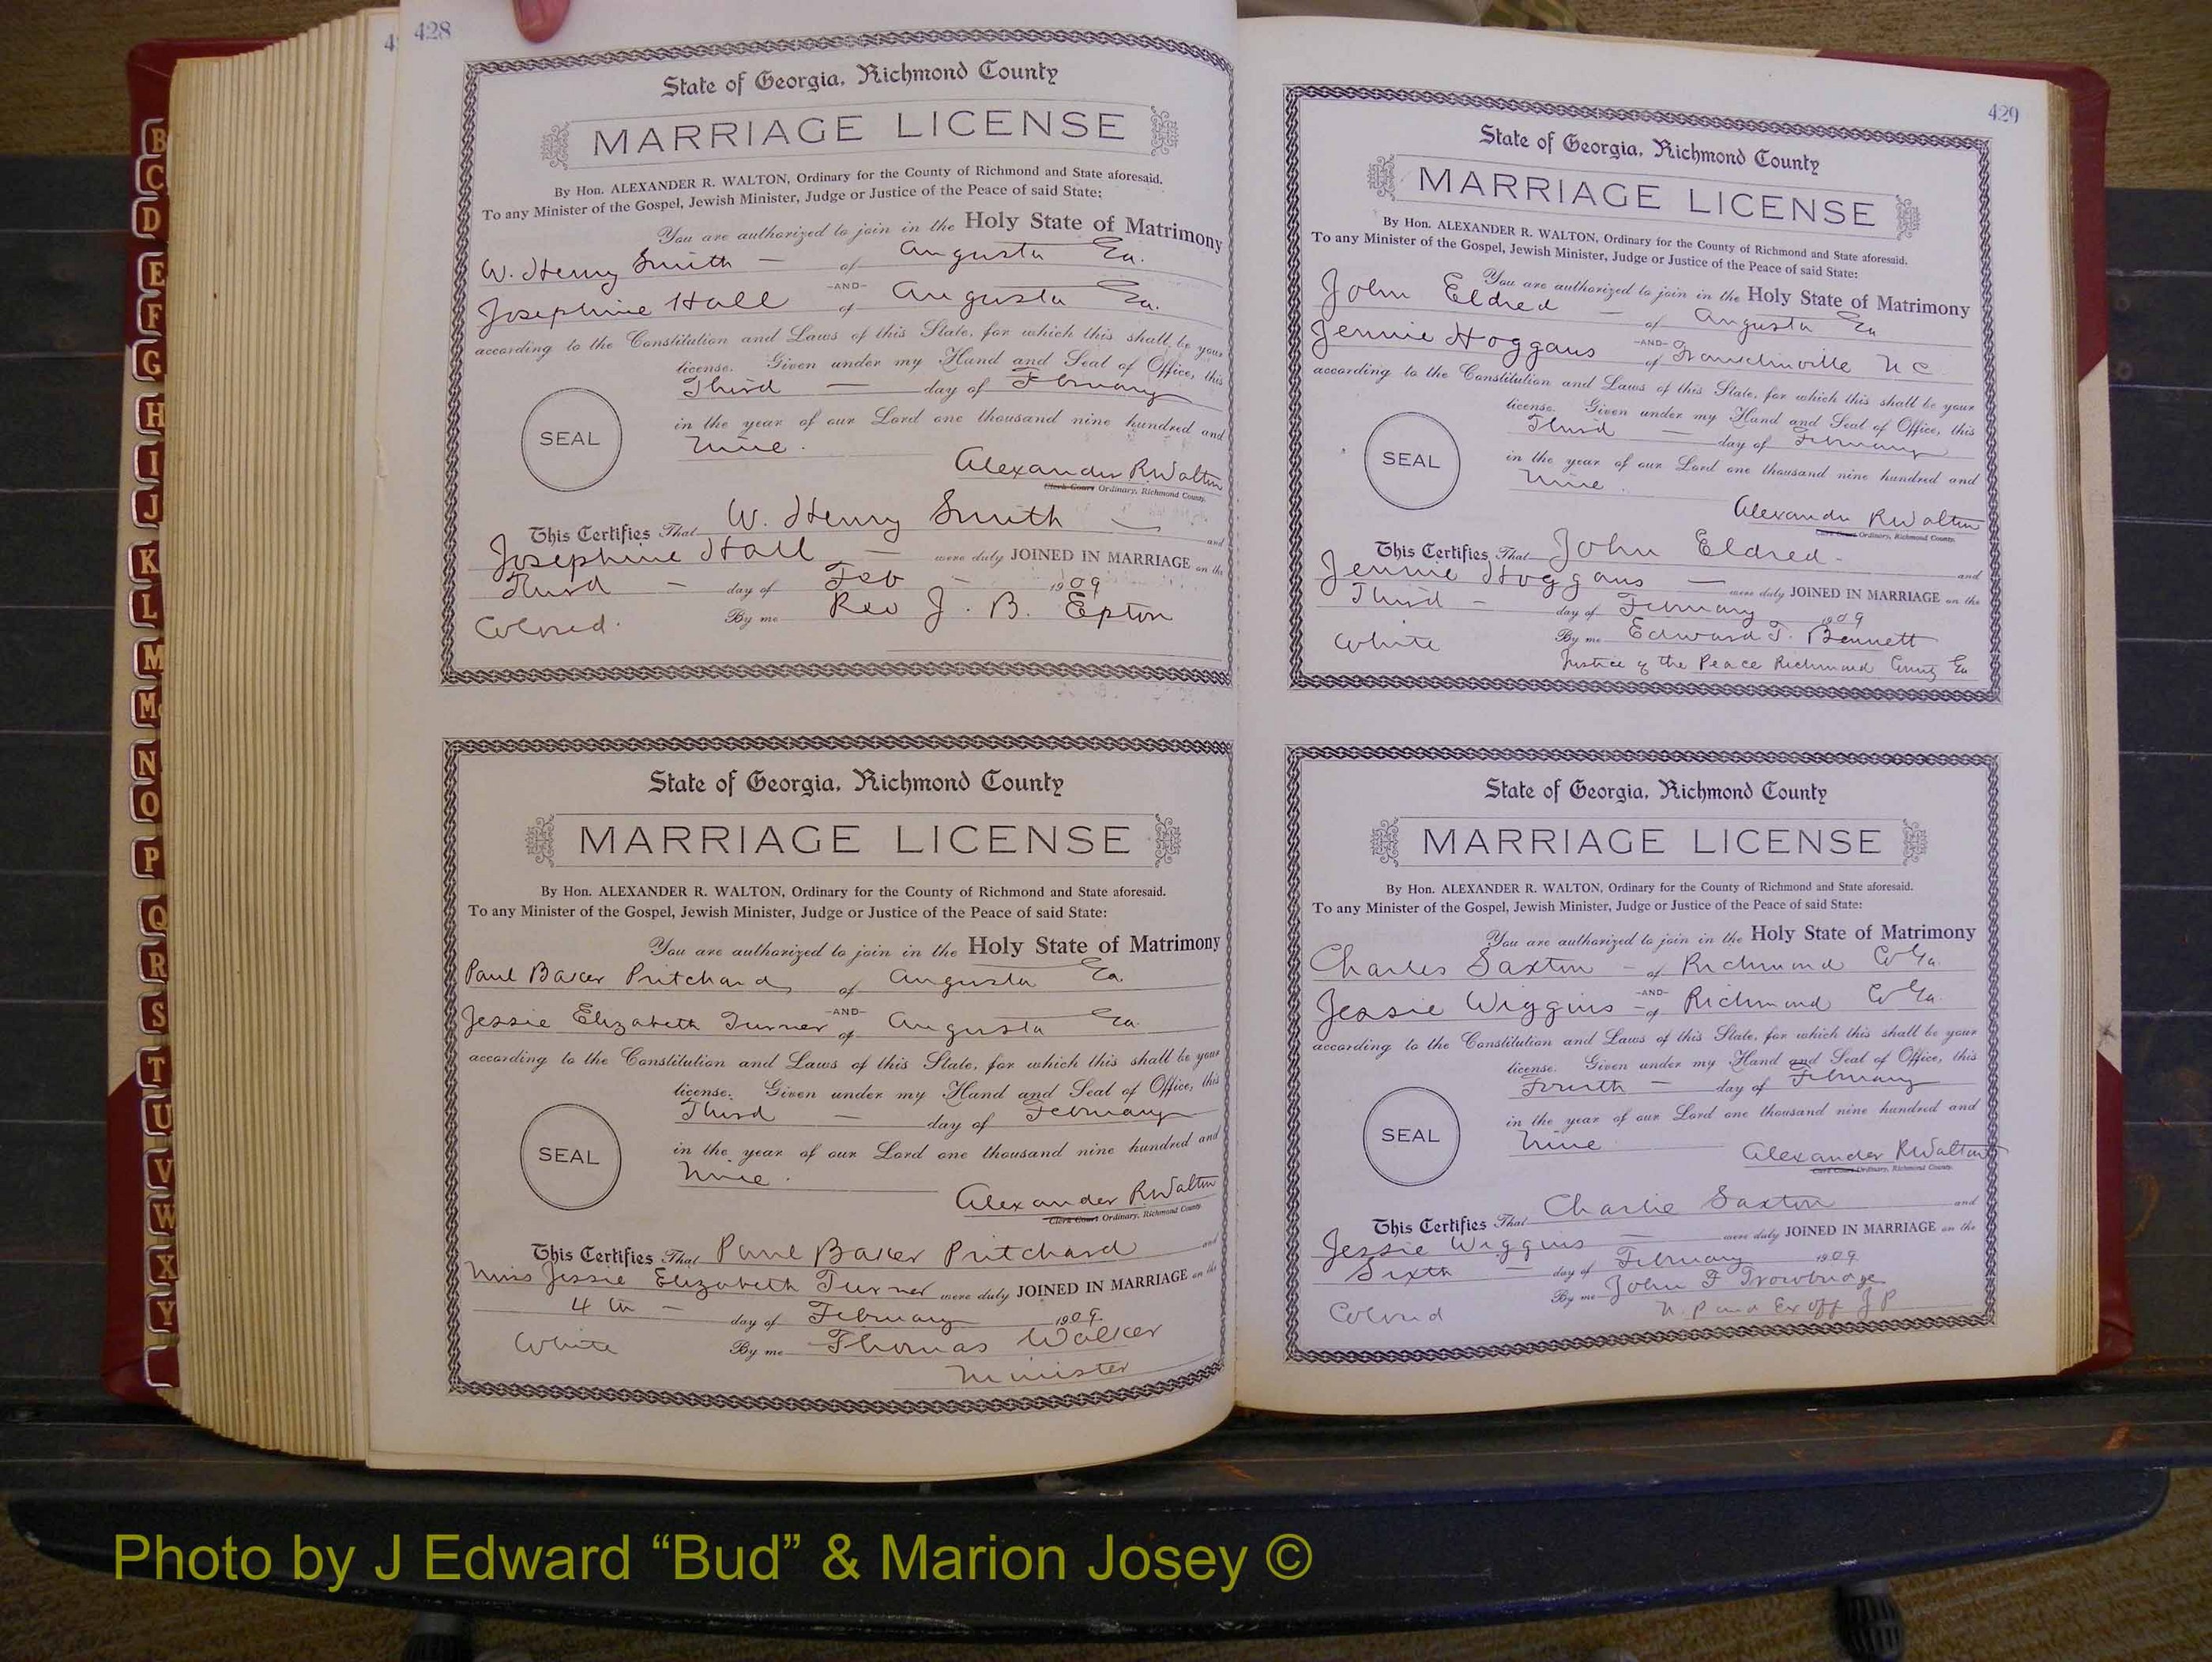 428
State of Georgia, Richmond County
MARRIAGE LICENSE
By Hon. ALEXANDER R. WALTON, Ordinary for the County of Richmond and State aforesaid.
To any Minister of the Gospel, Jewish Minister, Judge or Justice of the Peace of said State:
You are authorized to join in the Holy State of Matrimony
W. Henry Smith — of Augusta Ga.
—AND—
Josephine Hall of Augusta Ga.
according to the Constitution and Laws of this State, for which this shall be your
license. Given under my Hand and Seal of Office, this
Third — day of February
in the year of our Lord one thousand nine hundred and
SEAL
nine.
Alexander R Walton
Clerk Court Ordinary, Richmond County.
This Certifies That W. Henry Smith — and
Josephine Hall — were duly JOINED IN MARRIAGE on the
Third — day of Feb — 1909
Colored. By me Rev J. B. Epton
State of Georgia, Richmond County
MARRIAGE LICENSE
By Hon. ALEXANDER R. WALTON, Ordinary for the County of Richmond and State aforesaid.
To any Minister of the Gospel, Jewish Minister, Judge or Justice of the Peace of said State:
You are authorized to join in the Holy State of Matrimony
Paul Baker Pritchard, of Augusta Ga.
—AND—
Jessie Elizabeth Turner of Augusta Ga.
according to the Constitution and Laws of this State, for which this shall be your
license. Given under my Hand and Seal of Office, this
Third — day of February
in the year of our Lord one thousand nine hundred and
SEAL
nine.
Alexander R Walton
Clerk Court Ordinary, Richmond County
This Certifies That Paul Baker Pritchard and
Miss Jessie Elizabeth Turner were duly JOINED IN MARRIAGE on the
4th — day of February 1909.
White By me Thomas Walker
Minister
429
State of Georgia, Richmond County
MARRIAGE LICENSE
By Hon. ALEXANDER R. WALTON, Ordinary for the County of Richmond and State aforesaid.
To any Minister of the Gospel, Jewish Minister, Judge or Justice of the Peace of said State:
You are authorized to join in the Holy State of Matrimony
John Eldred — of Augusta Ga
—AND—
Jennie Hoggans of N C
according to the Constitution and Laws of this State, for which this shall be your
license. Given under my Hand and Seal of Office, this
Third — day of February
in the year of our Lord one thousand nine hundred and
SEAL
nine.
Alexander R Walton
Clerk Court Ordinary, Richmond County.
This Certifies That John Eldred — and
Jennie Hoggans — were duly JOINED IN MARRIAGE on the
Third — day of February 1909
White By me Edward J. Bennett
Justice of the Peace Richmond County Ga
State of Georgia, Richmond County
MARRIAGE LICENSE
By Hon. ALEXANDER R. WALTON, Ordinary for the County of Richmond and State aforesaid.
To any Minister of the Gospel, Jewish Minister, Judge or Justice of the Peace of said State:
You are authorized to join in the Holy State of Matrimony
Charles Saxton — of Richmond Co Ga.
—AND—
Jessie Wiggins — of Richmond Co Ga.
according to the Constitution and Laws of this State, for which this shall be your
license. Given under my Hand and Seal of Office, this
Fourth — day of February
in the year of our Lord one thousand nine hundred and
SEAL
nine
Alexander R Walton
Clerk Court Ordinary, Richmond County.
This Certifies That Charlie Saxton and
Jessie Wiggins — were duly JOINED IN MARRIAGE on the
Sixth — day of February 1909
Colored By me John F Trowbridge
N. P and Ex off J P
B
C
D
E
F
G
H
I
J
K
L
M
Mc
N
O
P
Q
R
S
T
U
V
W
X
Y
Photo by J Edward “Bud” & Marion Josey ©